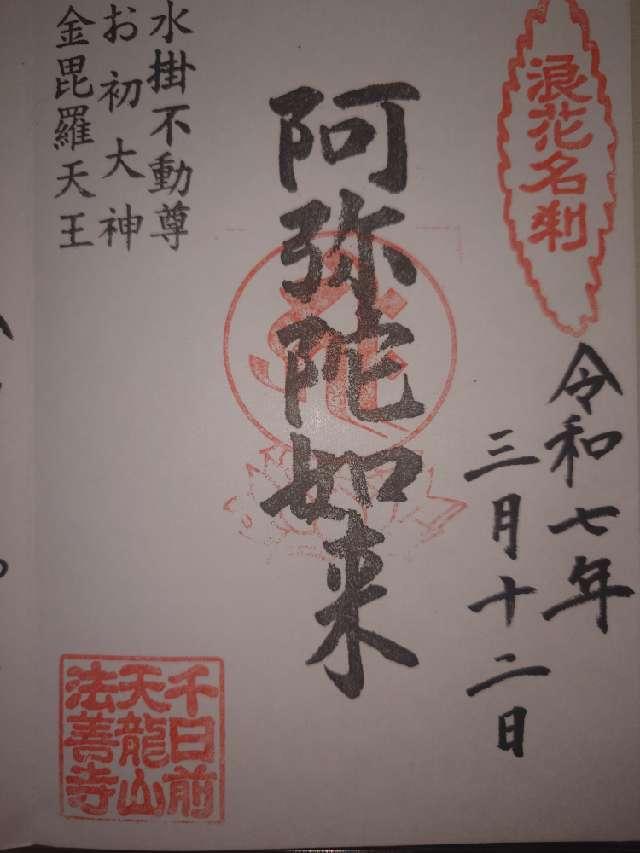 浪花名刹
令和七年
三月十二日
阿弥陀如来
水掛不動尊
お初大神
金毘羅天王
千日前
天龍山
法善寺